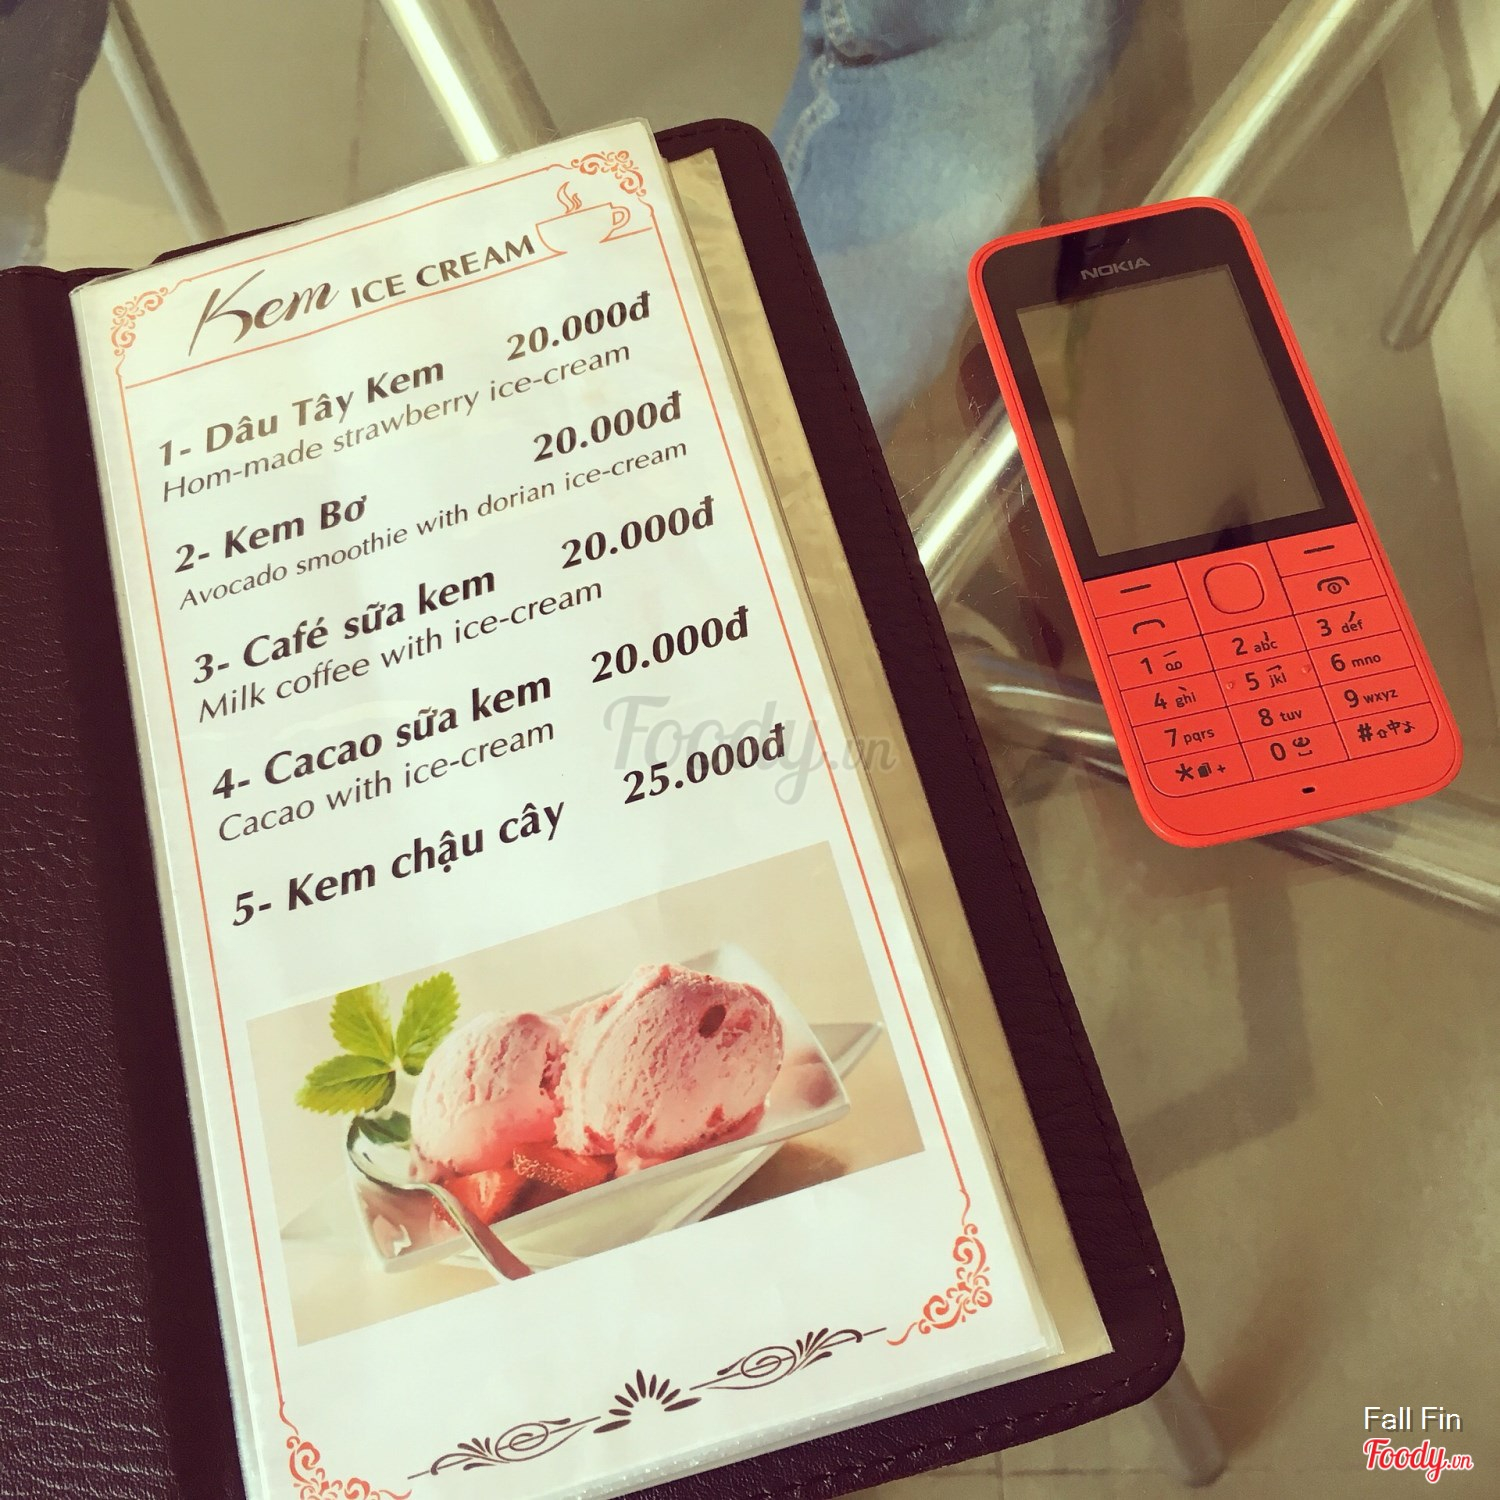 Kem ICE CREAM
1- Dâu Tây Kem 20.000đ
Hom-made strawberry ice-cream
2- Kem Bơ 20.000đ
Avocado smoothie with dorian ice-cream
3- Café sữa kem 20.000đ
Milk coffee with ice-cream
4- Cacao sữa kem 20.000đ
Cacao with ice-cream
5- Kem chậu cây 25.000đ
Foody.vn
NOKIA
1 2 abc 3 def
4 ghi 5 jkl 6 mno
7 pqrs 8 tuv 9 wxyz
* + 0 # 中
Fall Fin
Foody.vn